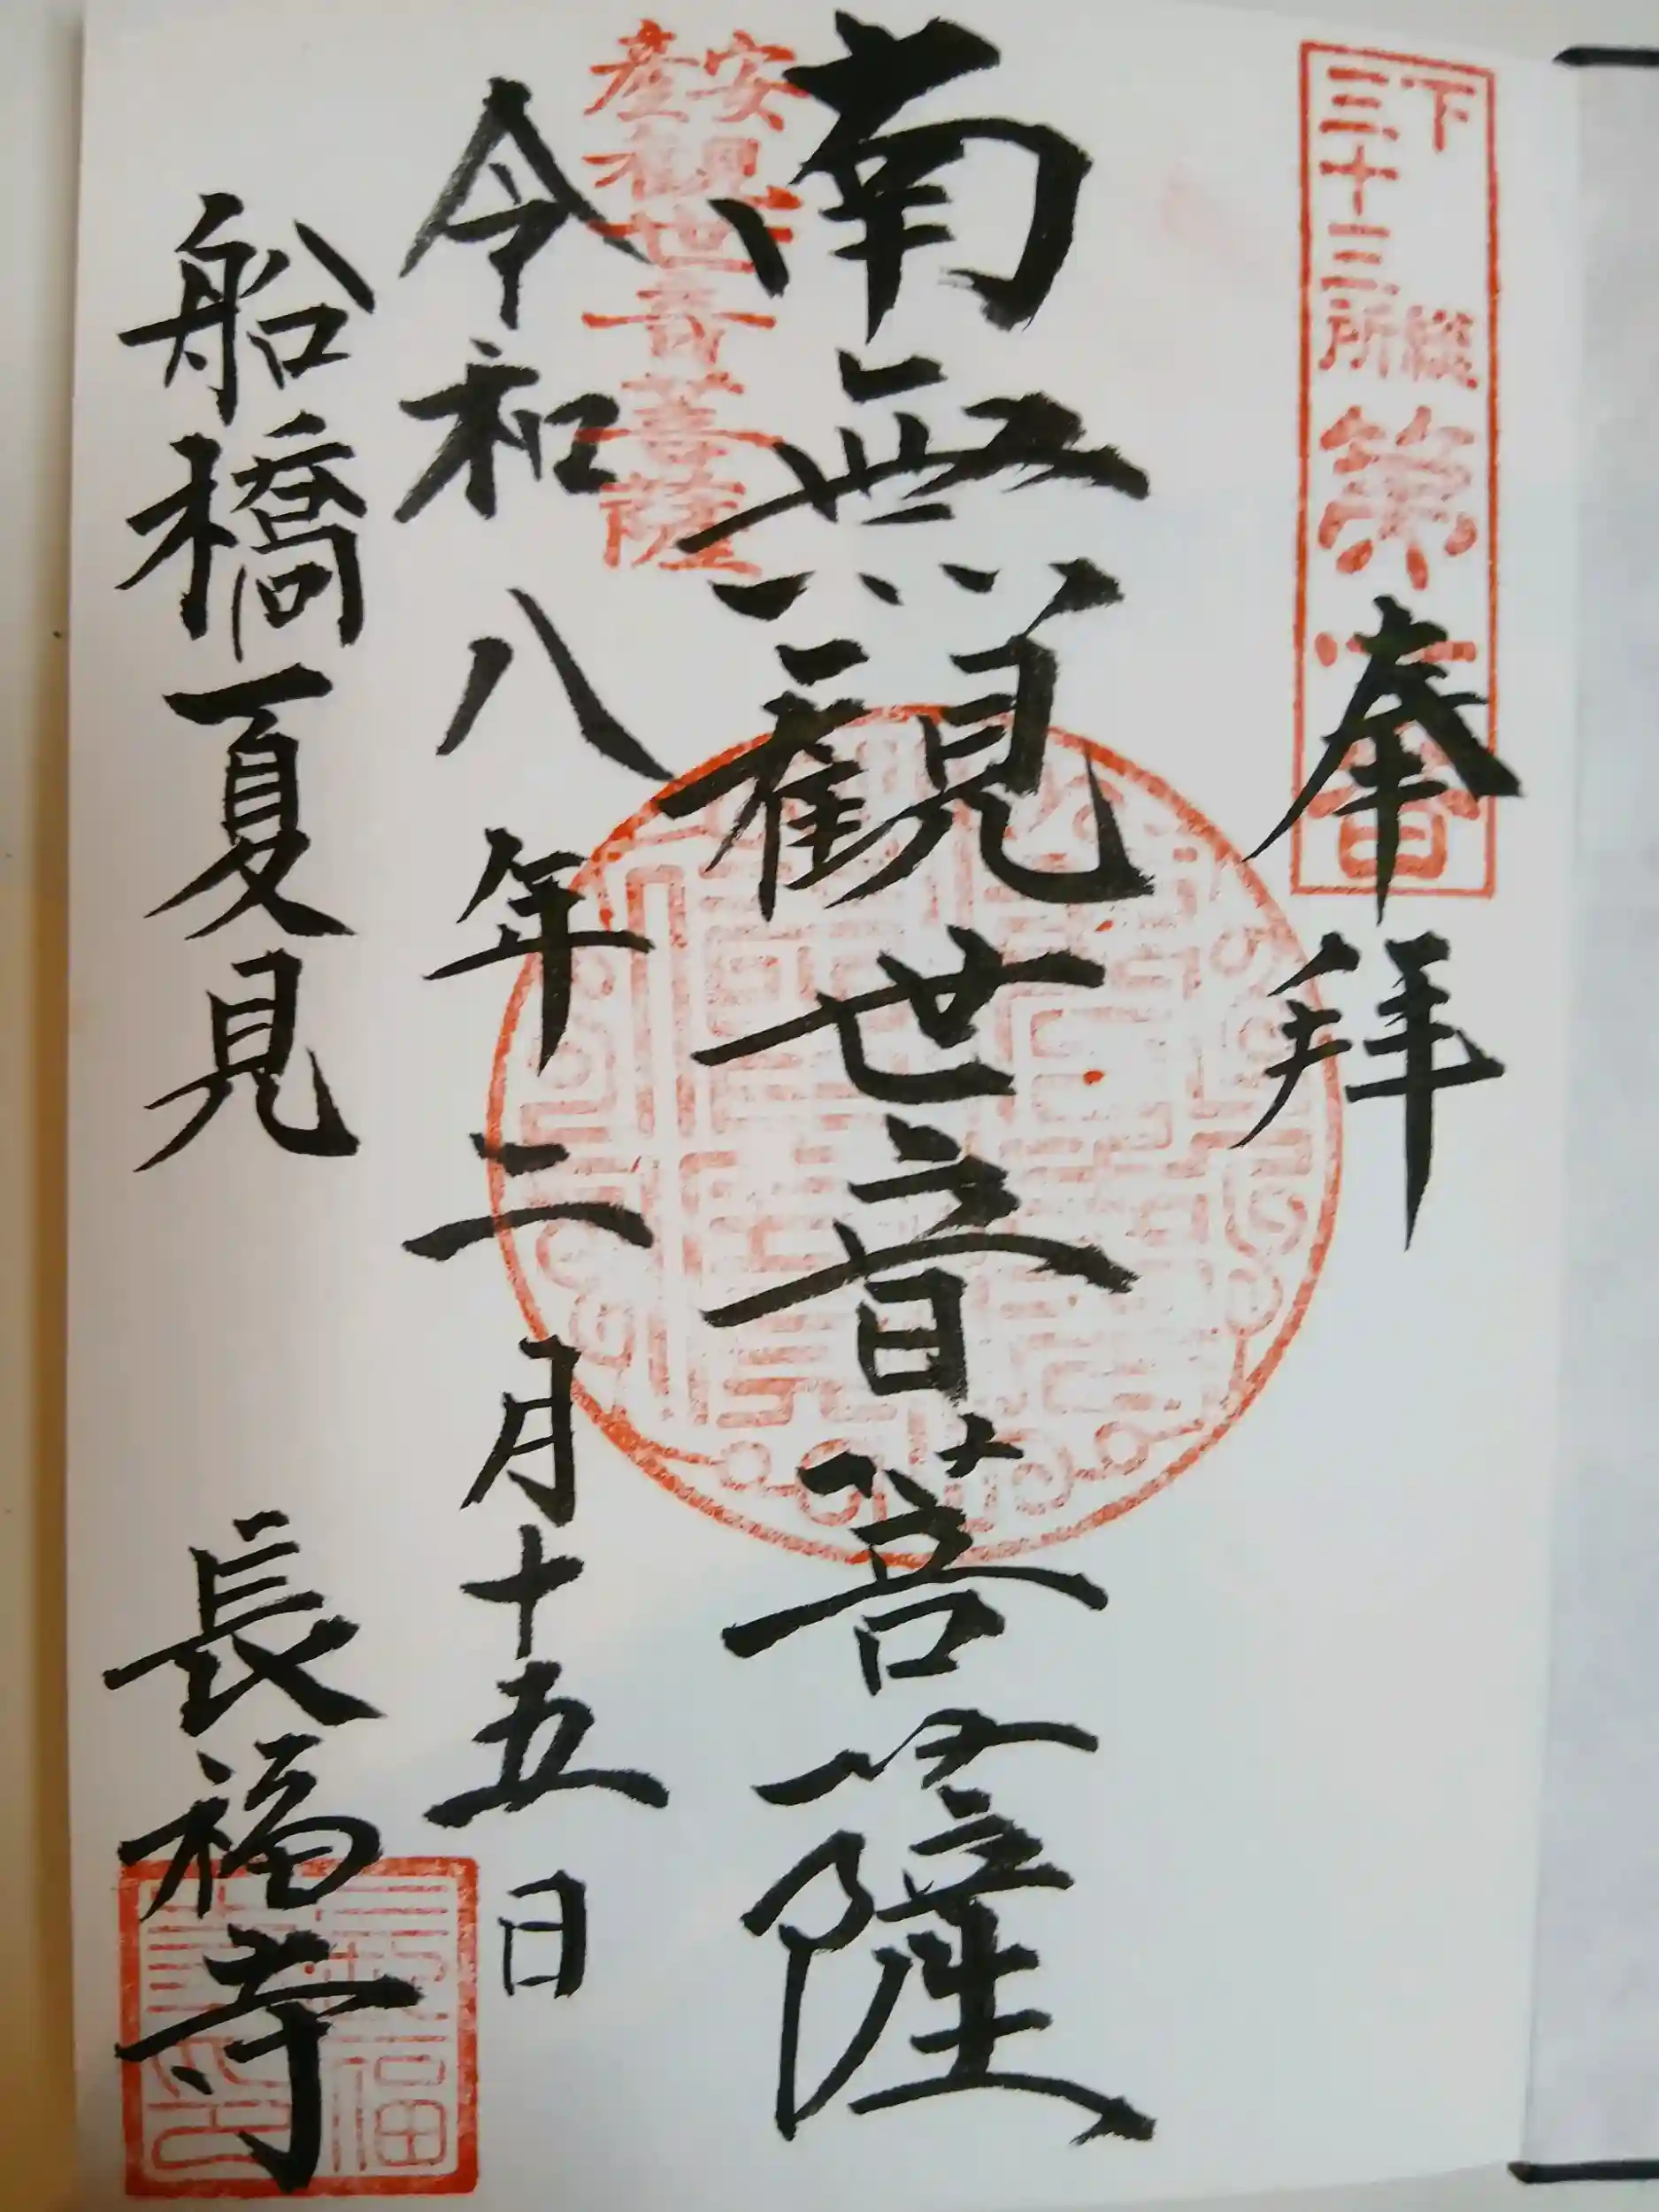 下総三十三所 第
奉拝
南無観世音菩薩
安産観世音菩薩
令和八年二月十五日
船橋夏見 長福寺